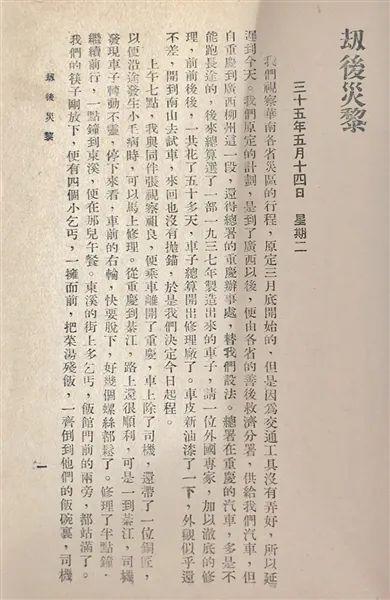 劫後災黎
三十五年五月十四日 星期二
我們視察華南各省災區的行程，原定三月底開始的，但是因爲交通工具沒有弄好，所以延
遲到今天。我們原定的計劃，是到了廣西以後，便由各省的善後救濟分署，供給我們汽車，但
自重慶到廣西柳州這一段，還得總署的重慶辦事處，替我們設法。總署在重慶的汽車，多是不
能跑長途的，後來總算選了一部一九三七年製造出來的車子，請一位外國專家，加以澈底的修
理，前前後後，一共花了五十多天，車子總算開出修理廠了。車皮新油漆了一下，外觀似乎還
不差，開到南山去試車，來回也沒有拋錨，於是我們決定今日起程。
上午七點，我與同伴張視察祖良，便乘車離開了重慶，車上除了司機，還帶了一位銅匠，
以便沿途發生小毛病時，可以馬上修理。從重慶到綦江，路上還很順利，可是一到綦江，司機
發現車子轉動不靈，停下來看，車前的右輪，快要脫下，好幾個螺絲都鬆了。修理了半點鐘，
繼續前行，一點鐘到東溪，便在那兒午餐。東溪的街上多乞丐，飯館門前的兩旁，都站滿了。
我們的筷子剛放下，便有四個小乞丐，一擁而前，把菜湯殘飯，一齊倒到他們的飯碗裏，司機
劫後災黎
一